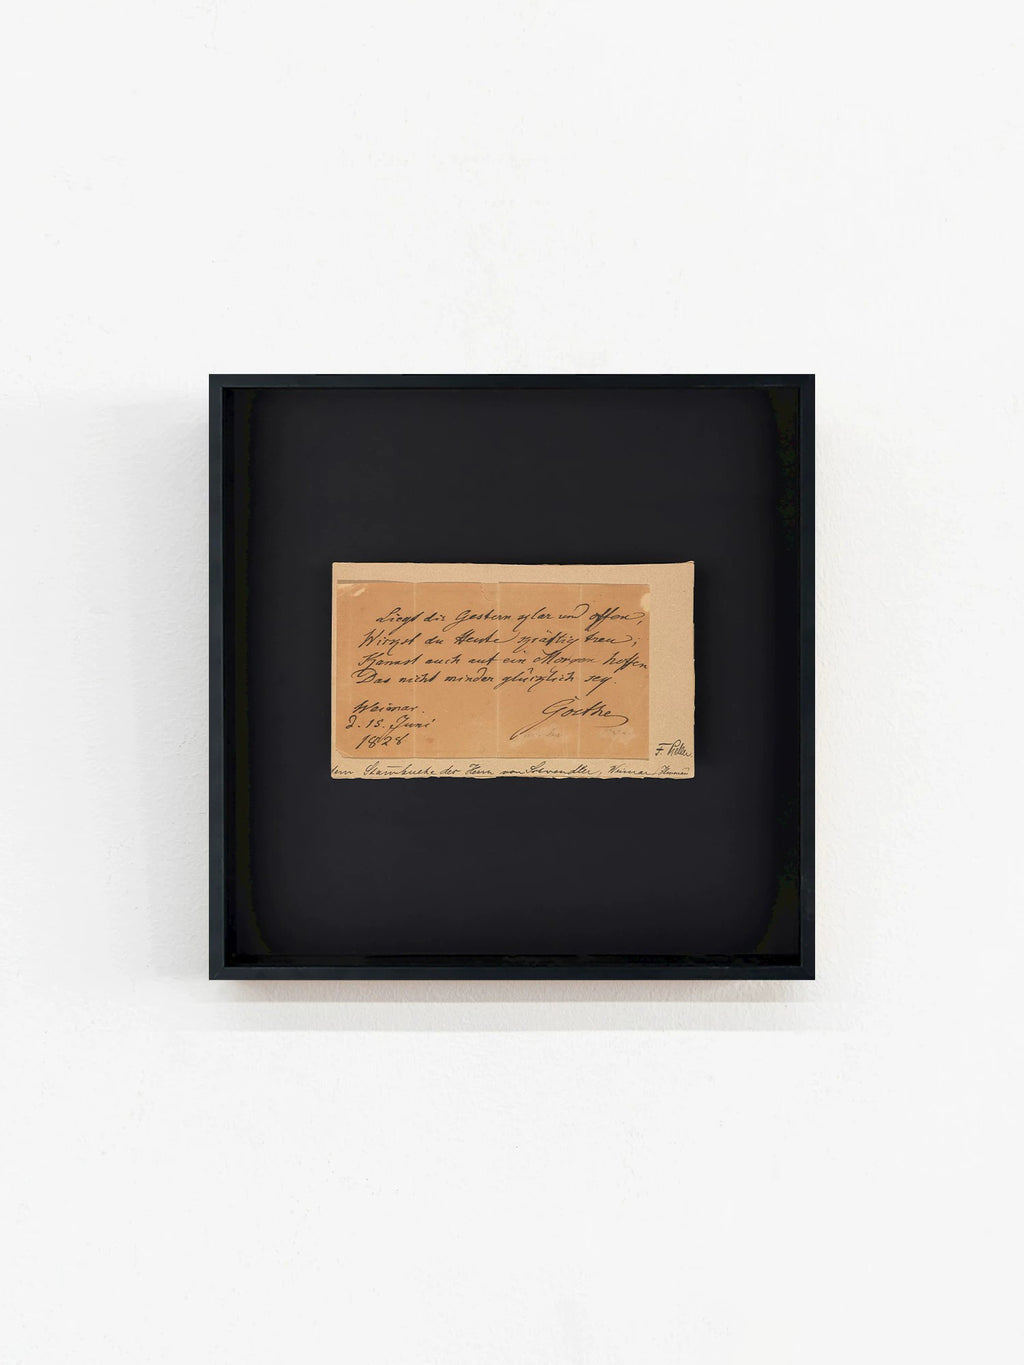 Liegt dir Gestern klar und offen,
Wirkst du Heute kräftig treu;
Kannst auch auf ein Morgen hoffen
Das nicht minder glücklich sey.
Weimar.
d. 15. Juni
1828
Goethe
F. Preller
dem Stammbuche der Herrn von Weimar